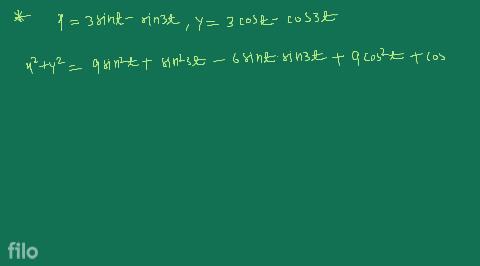 * x = 3 sint - sin3t, y = 3 cost - cos3t
x² + y² = 9 sin²t + sin²3t - 6 sint. sin3t + 9 cos²t + cos
filo